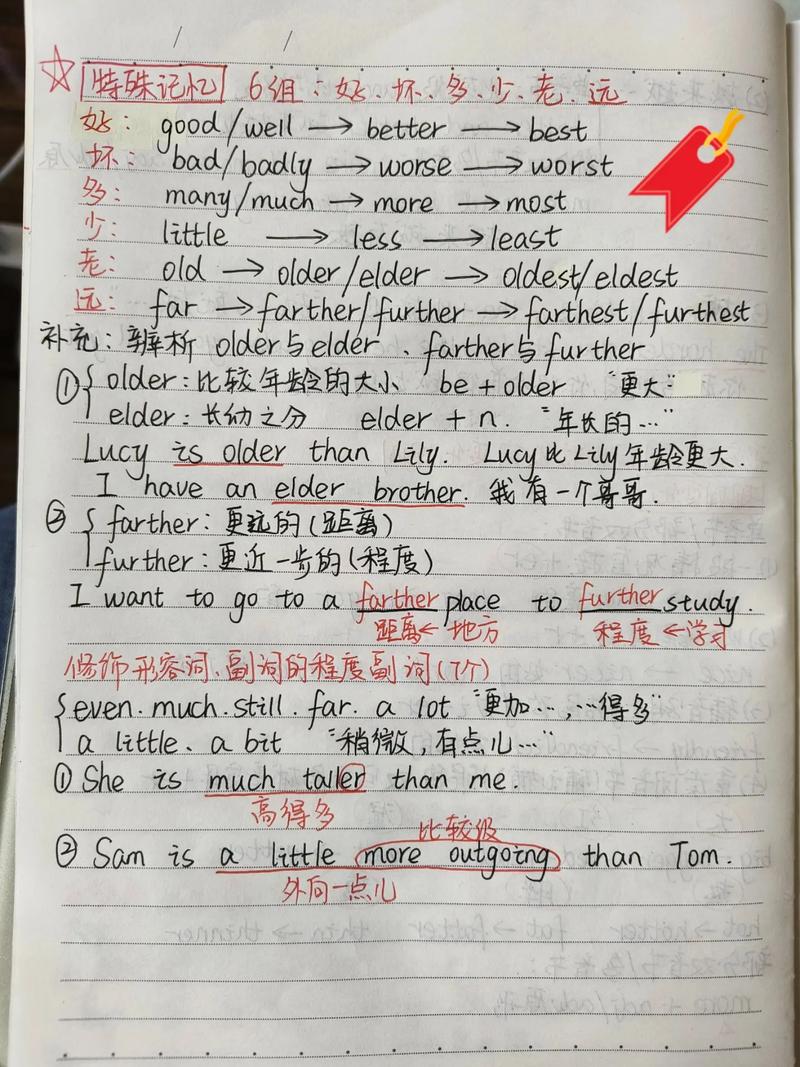 ☆ 特殊记忆 6组：好、坏、多、少、老、远
好： good/well → better → best
坏： bad/badly → worse → worst
多： many/much → more → most
少： little → less → least
老： old → older/elder → oldest/eldest
远： far → farther/further → farthest/furthest
补充：辨析 older与elder、farther与further
① { older：比较年龄的大小 be + older "更大"
elder：长幼之分 elder + n. "年长的…"
Lucy is older than Lily. Lucy比Lily年龄更大.
I have an elder brother. 我有一个哥哥.
② { farther：更远的(距离)
further：更近一步的(程度)
I want to go to a farther place to further study.
距离←地方 程度←学习
修饰形容词、副词的程度副词(7个)
{ even. much. still. far. a lot "更加…,…得多"
a little、a bit "稍微,有点儿…"
① She is much taller than me.
高得多
比较级
② Sam is a little more outgoing than Tom.
外向一点儿